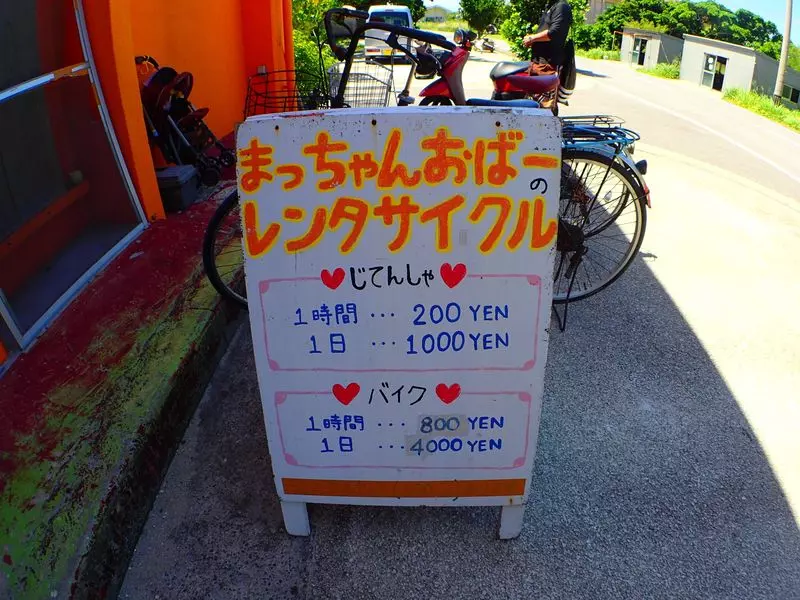 まっちゃんおばーの
レンタサイクル
じてんしゃ
1時間 … 200 YEN
1日 … 1000 YEN
バイク
1時間 … 800 YEN
1日 … 4000 YEN